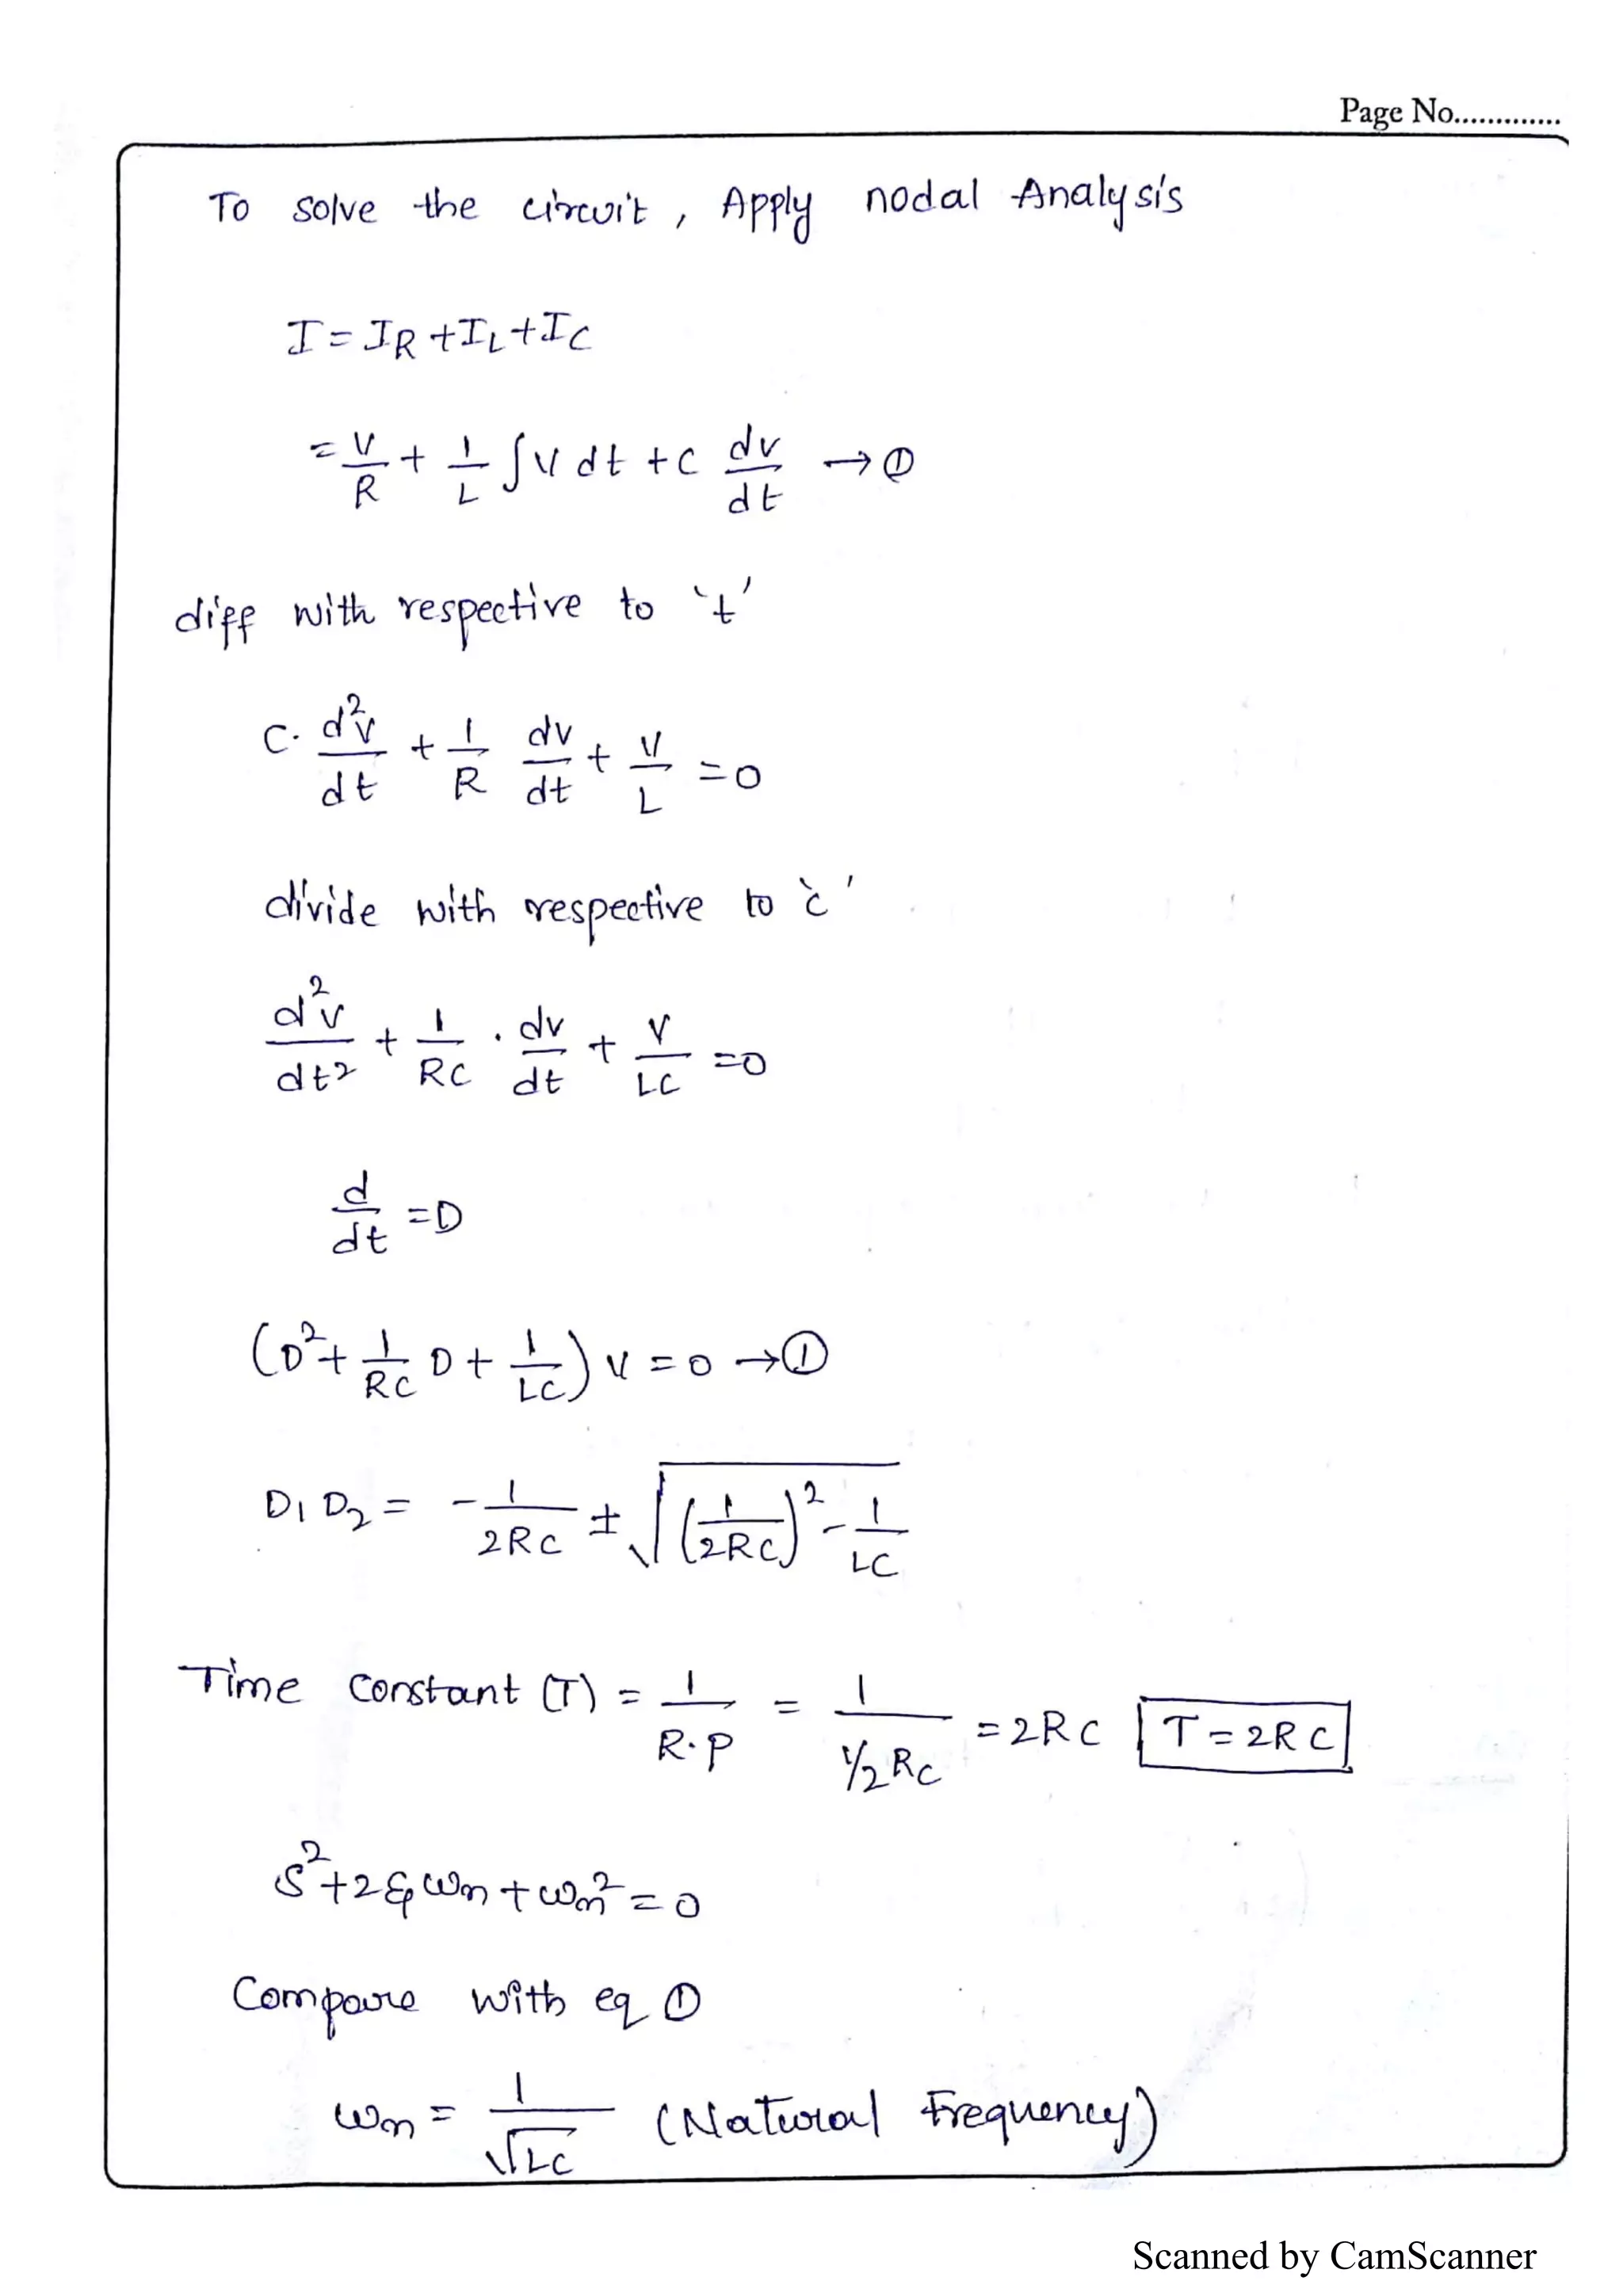 Page No.............
To solve the circuit, Apply nodal Analysis
I = I_R + I_L + I_C
= V/R + 1/L ∫V dt + C dv/dt → ①
diff with respective to 't'
C. d²v/dt + 1/R dv/dt + V/L = 0
divide with respective to 'c'
d²v/dt² + 1/RC . dv/dt + V/LC = 0
d/dt = D
(D² + 1/RC D + 1/LC) V = 0 → ①
D₁ D₂ = - 1/2RC ± √((1/2RC)² - 1/LC)
Time constant (T) = 1/R.P = 1/(1/2RC) = 2RC T = 2RC
S² + 2ξωn + ωn² = 0
Compare with eq ①
ωn = 1/√LC (Natural Frequency)
Scanned by CamScanner